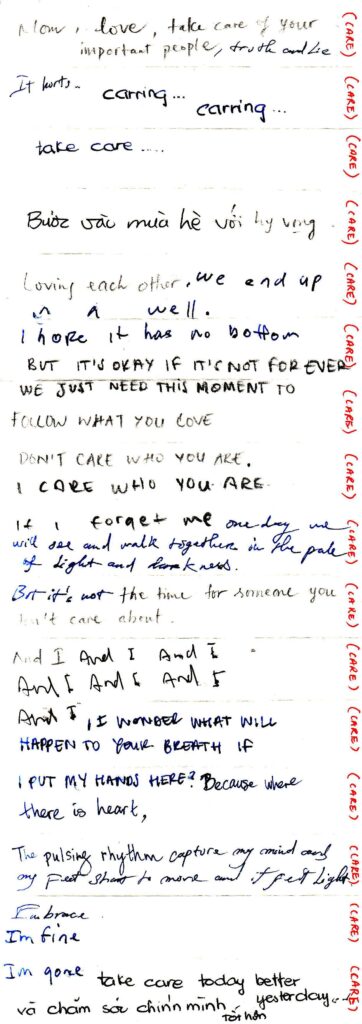 Mom, love, take care of your (CARE)
important people, truth and lie
It hurts.. carring... (CARE)
carring... (CARE)
take care ..... (CARE)
(CARE)
Bước vào mùa hè với hy vọng. (CARE)
(CARE)
Loving each other, we end up (CARE)
in a well. (CARE)
I hope it has no bottom
BUT IT'S OKAY IF IT'S NOT FOR EVER (CARE)
WE JUST NEED THIS MOMENT TO (CARE)
FOLLOW WHAT YOU LOVE (CARE)
DON'T CARE WHO YOU ARE. (CARE)
I CARE WHO YOU ARE (CARE)
If I forget me one day we (CARE)
will see and walk together in the
of light and darkness. (CARE)
But it's not the time for someone you (CARE)
don't care about. (CARE)
And I And I And I (CARE)
And I And I And I
And I, I WONDER WHAT WILL (CARE)
HAPPEN TO YOUR BREATH IF (CARE)
I PUT MY HANDS HERE? Because where (CARE)
there is heart, (CARE)
The pulsing rhythm capture my mind and (CARE)
my feet start to move and it felt light (CARE)
Embrace. (CARE)
I'm fine (CARE)
I'm gone take care today better (CARE)
yesterday...
và chăm sóc chính mình tốt hơn